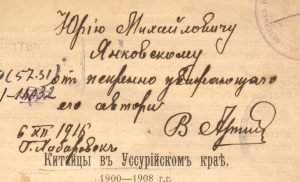 Юрію Михайловичу
Янковскому
отъ искренно уважающаго
его автора
6 XII 1916
г. Хабаровскъ
В. Арсе
Китайцы въ Уссурійскомъ краѣ.
1900—1908 г.г.